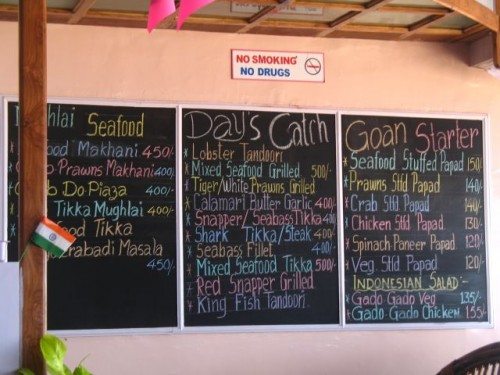 NO SMOKING
NO DRUGS
Mughlai Seafood
food Makhani 450/-
Prawns Makhani 400/-
Do Piaza 400/-
Tikka Mughlai 400/-
food Tikka
Masala
450/-
Day's Catch
* Lobster Tandoori
* Mixed Seafood Grilled 500/-
* Tiger/White Prawns Grilled
* Calamari Butter Garlic 400/-
* Snapper/Seabass Tikka 400/-
* Shark Tikka/Steak 400/-
* Seabass Fillet 400/-
* Mixed Seafood Tikka 500/-
* Red Snapper Grilled
* King Fish Tandoori
Goan Starter
* Seafood Stuffed Papad 150/-
* Prawns Stfd Papad 140/-
* Crab Stfd Papad 140/-
* Chicken Stfd Papad 130/-
* Spinach Paneer Papad 120/-
* Veg Stfd Papad 120/-
INDONESIAN SALAD:-
* Gado Gado Veg 135/-
* Gado Gado Chicken 155/-